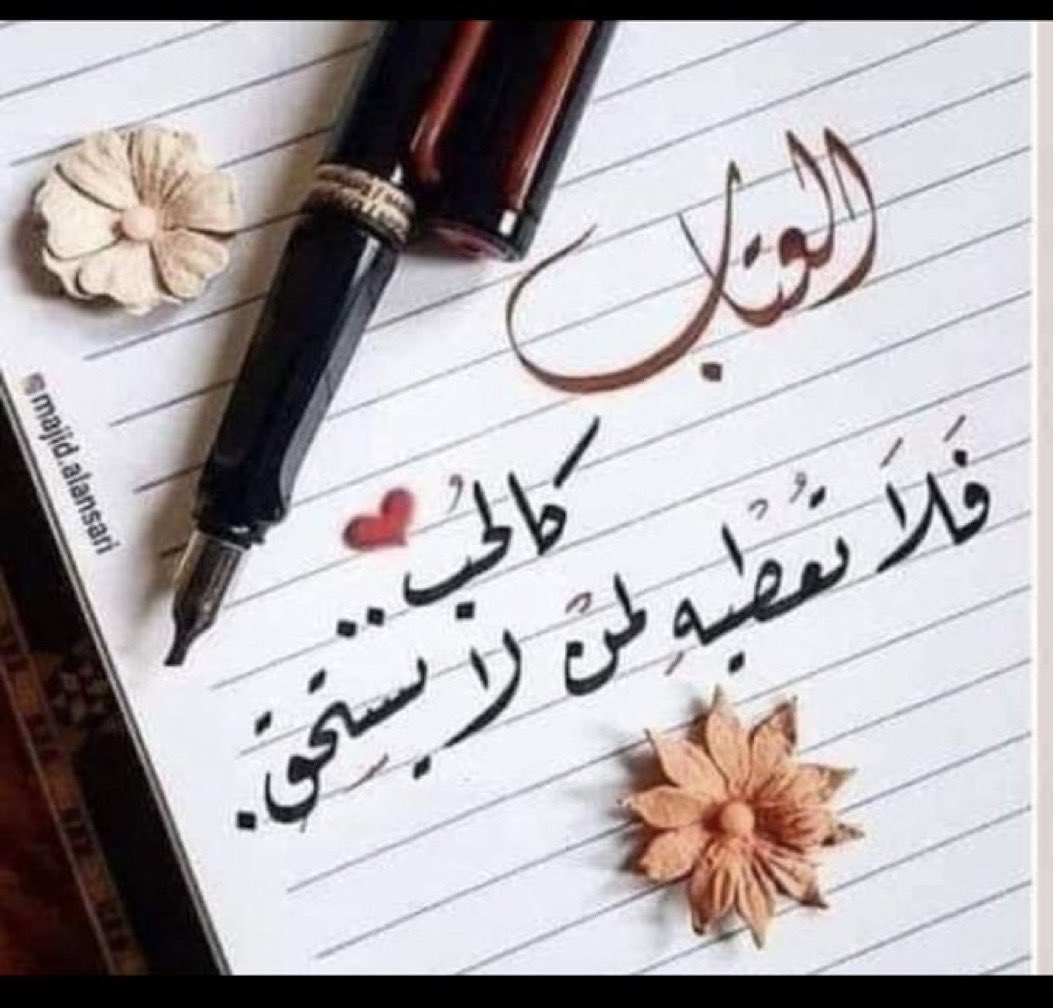 العتاب
كالحُب..
فَلاَ تُعْطيهِ لمنْ لا يستحق.
@majid.alansari